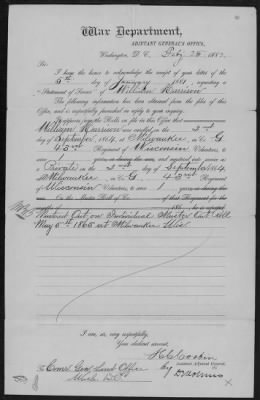 War Department,
ADJUTANT GENERAL'S OFFICE,
Washington, D. C., Feby 28 1883.
Sir:
I have the honor to acknowledge the receipt of your letter of the
5th day of January 1883, requesting a
"Statement of Service" of William Harrison
The following information has been obtained from the files of
this Office, and is respectfully furnished in reply to your inquiry:
It appears from the Rolls on file in this Office that
William Harrison was enrolled on the 3d
day of September, 1864, at Milwaukee in Co. G
43rd Regiment of Wisconsin Volunteers,
to serve 1 years, and mustered into service as a
Private on the 3d day of September 1864
at Milwaukee in Co. G 43rd Regiment
of Wisconsin Volunteers, to serve 1 years
On the Muster Roll of Co. of that Regiment for the
months of
Mustered Out, on Individual Muster Out Roll
May 5th 1865 at Milwaukee Wis
I am, sir, very respectfully,
Your obedient servant,
Assistant Adjutant General.
by
To: Comr Genl Land Office